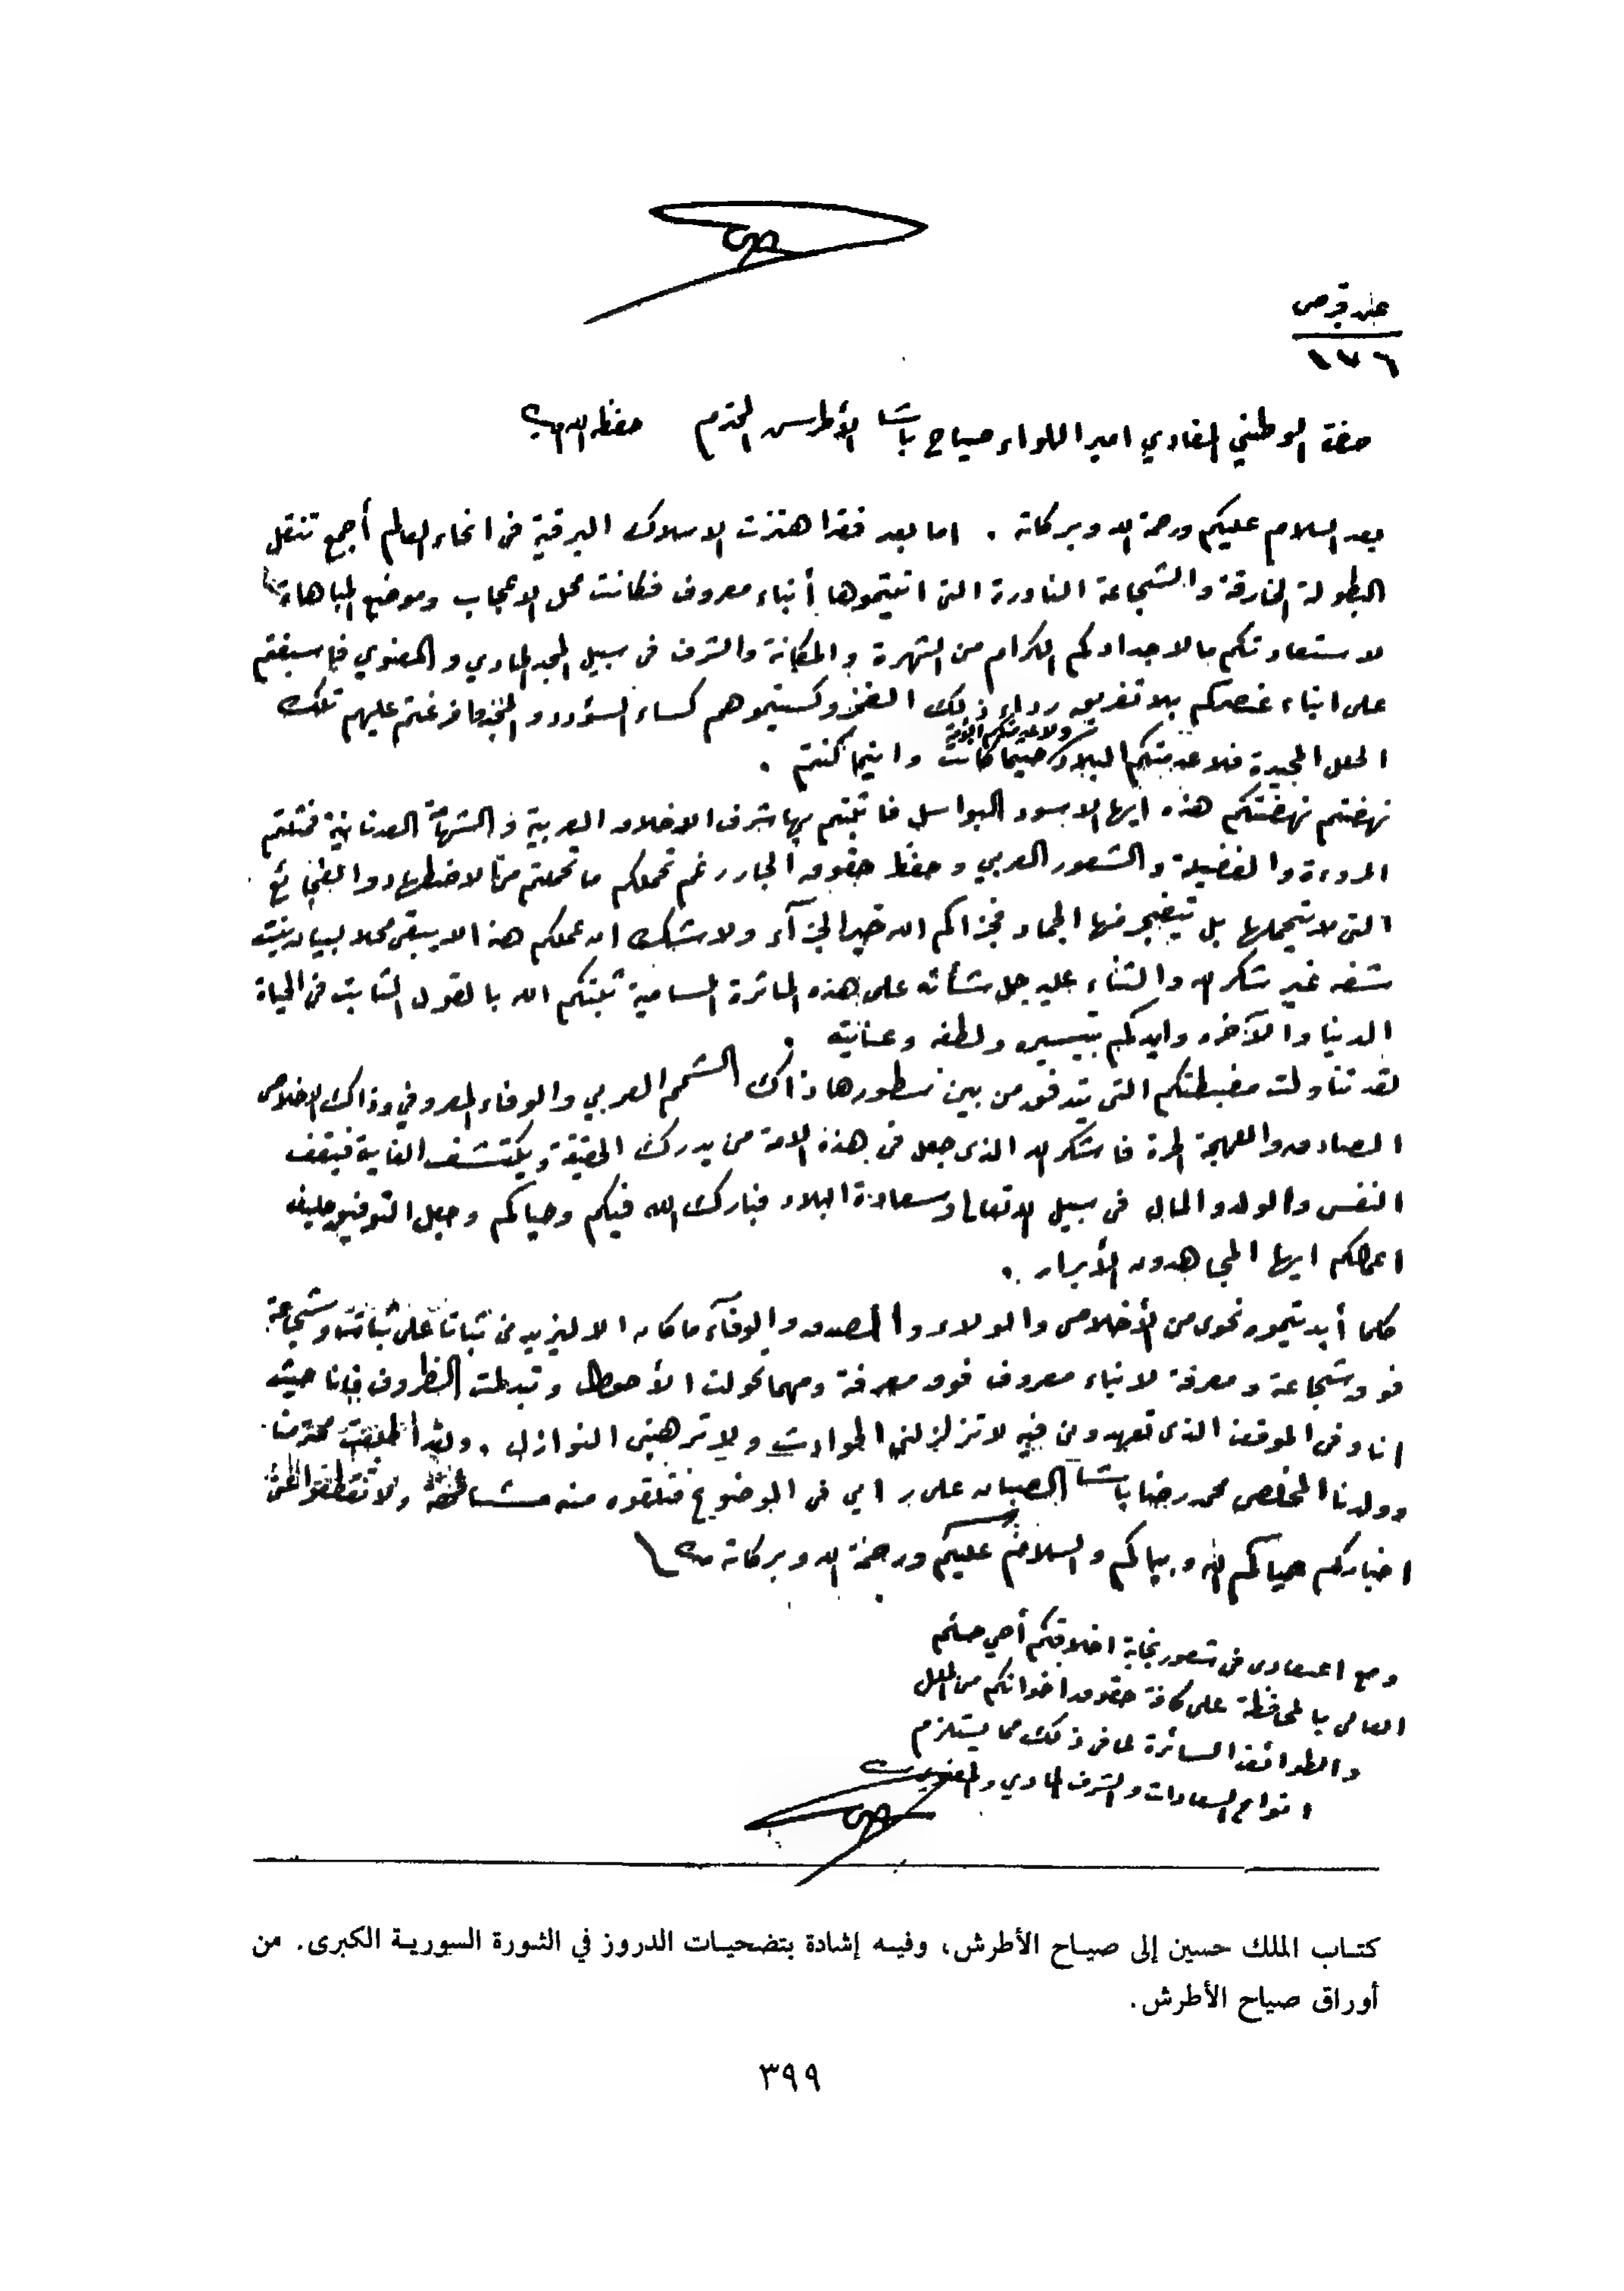 قبرص
١٧٦
حضرة الوطني المفادي امير اللواء صياح باشا الأطرش المحترم حفظه الله
بعد السلام عليكم ورحمة الله وبركاته . اما بعد فقد اهتزت الاسلاك البرقية في انحاء العالم أجمع تنقل
البطولة الخارقة والشجاعة النادرة التي اتيتموها أبناء معروف فكانت محل الاعجاب وموضع المباهاة
لاستعادتكم ما لاجدادكم الكرام من الشهرة والمكانة والشرف في سبيل المجد المادي والمعنوي فاسبغتم
على ابناء عنصركم بلا تفريق رداء ذلك الفخر وكسيتموهم كساء السؤدد والمجد وافرغتم عليهم تلك
الحلل المجيدة فلا عدمتكم البلاد حيثما كانت واينما كنتم .
نهضتم نهضتكم هذه ايها الاسود البواسل فاثبتم بها شرف الاخلاق العربية والشهامة العدنانية فمثلتم
المروءة والفضيلة والشعور العربي وحفظ حقوق الجار رغم تحملكم ما تحملتم من الاضطهاد والفجائع
التي لا تتحملها بل تتفجر منها الجماد فجزاكم الله خير الجزآء ولا شك ان عملكم هذا لا يبقى محلا لبيان بنت
شفه غير شكر الله والثناء عليه جل شأنه على هذه المأثرة السامية ثبتكم الله بالقول الثابت في الحياة
الدنيا والآخره وايدكم بتيسيره ولطفه وعنايته .
لقد تناولت مضبطتكم التي يتدفق من بين سطورها ذاك الشمم العربي والوفاء المعروفي وذاك الاخلاص
الصادق واللهجة الحرة فاشكر الله الذي جعل في هذه الامة من يدرك الحقيقة ويكتشف الغاية فيقف
النفس والولد والمال في سبيل الله تعالى وسعادة البلاد فبارك الله فيكم وحياكم وجعل التوفيق حليف
اعمالكم ايها المجاهدون الأبرار .
كلما أبديتموه نحوي من الأخلاص والولاء والصدق والوفآء ما كان الا ليزيدني ثباتا على ثبات وشجاعة
فوق شجاعة ومعرفة لابناء معروف فوق معرفة ومهما تحولت الأحوال وتبدلت الظروف فانا حيث
انا وفي الموقف الذي تعهدونني فيه لا تزلزلني الحوادث ولا ترهبني النوازل . ولقد أطلعت محترمنا
وولدنا المخلص محمد رضا باشا الصبان على رأيي في الموضوع فتلقوه منه مشافهة ولا تقطعوا عني
اخباركم حياكم الله وبياكم والسلام عليكم ورحمة الله وبركاته
ومع اعتمادي في شعور نجابة اخلاقكم أحي حسكم
العالي بالمحافظة على كافة حقوق اخوانكم من الملل
والطوائف السائرة لما في ذلك مما يستلزم
انواع السعادات والشرف المادي والمعنوي
كتاب الملك حسين إلى صياح الأطرش، وفيه إشادة بتضحيات الدروز في الثورة السورية الكبرى. من
أوراق صياح الأطرش.
٣٩٩